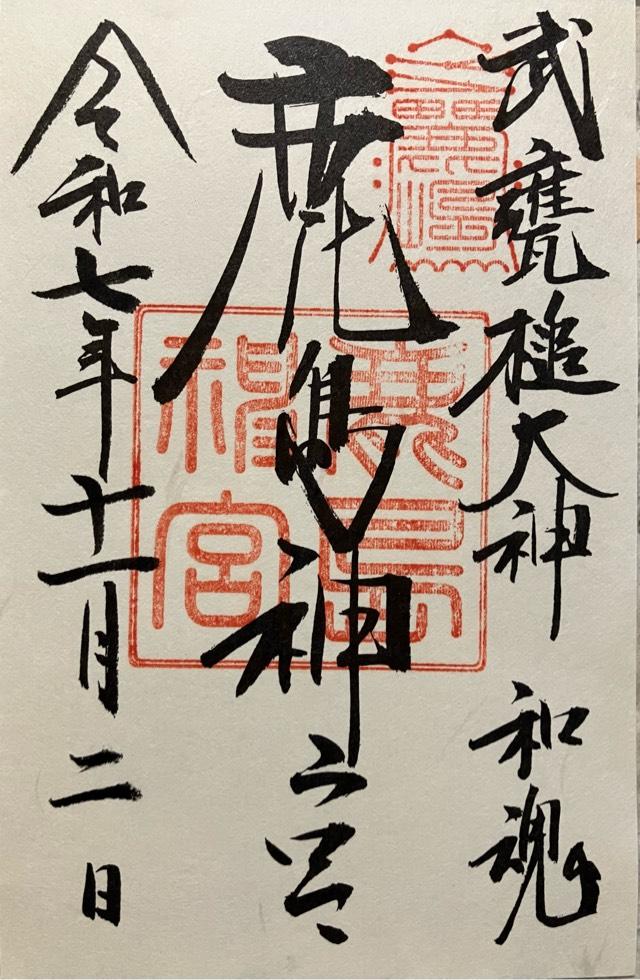 武甕槌大神 和魂
鹿島神宮
鹿島神宮
令和七年十一月二日